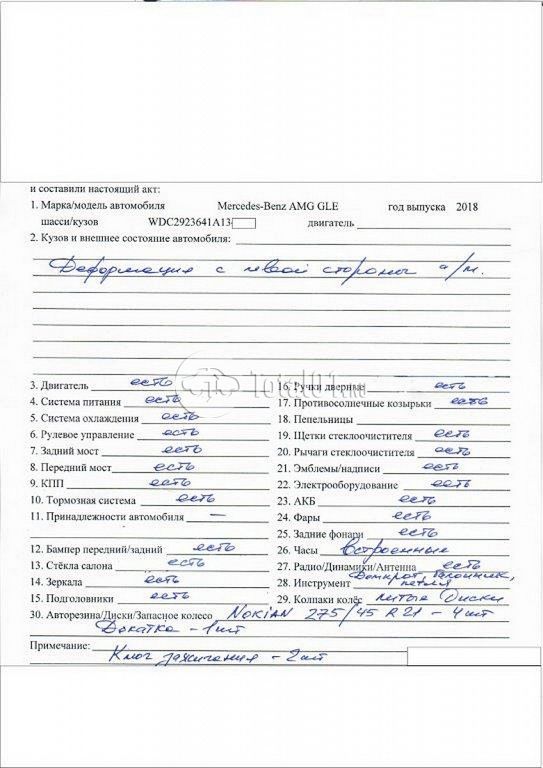 и составили настоящий акт:
1. Марка/модель автомобиля Mercedes-Benz AMG GLE год выпуска 2018
шасси/кузов WDC2923641A13 двигатель
2. Кузов и внешнее состояние автомобиля:
Деформация с левой стороны а/м.
3. Двигатель есть 16. Ручки дверные есть
4. Система питания есть 17. Противосолнечные козырьки есть
5. Система охлаждения есть 18. Пепельницы
6. Рулевое управление есть 19. Щетки стеклоочистителя есть
7. Задний мост есть 20. Рычаги стеклоочистителя есть
8. Передний мост есть 21. Эмблемы/надписи есть
9. КПП есть 22. Электрооборудование есть
10. Тормозная система есть 23. АКБ есть
11. Принадлежности автомобиля — 24. Фары есть
25. Задние фонари есть
12. Бампер передний/задний есть 26. Часы встроенные
13. Стёкла салона есть 27. Радио/Динамики/Антенна есть
14. Зеркала есть 28. Инструмент Домкрат, балонник, петля
15. Подголовники есть 29. Колпаки колёс литые диски
30. Авторезина/Диски/Запасное колесо NOKIAN 275/45 R21 - 4 шт
Докатка - 1 шт
Примечание: Ключ зажигания - 2 шт